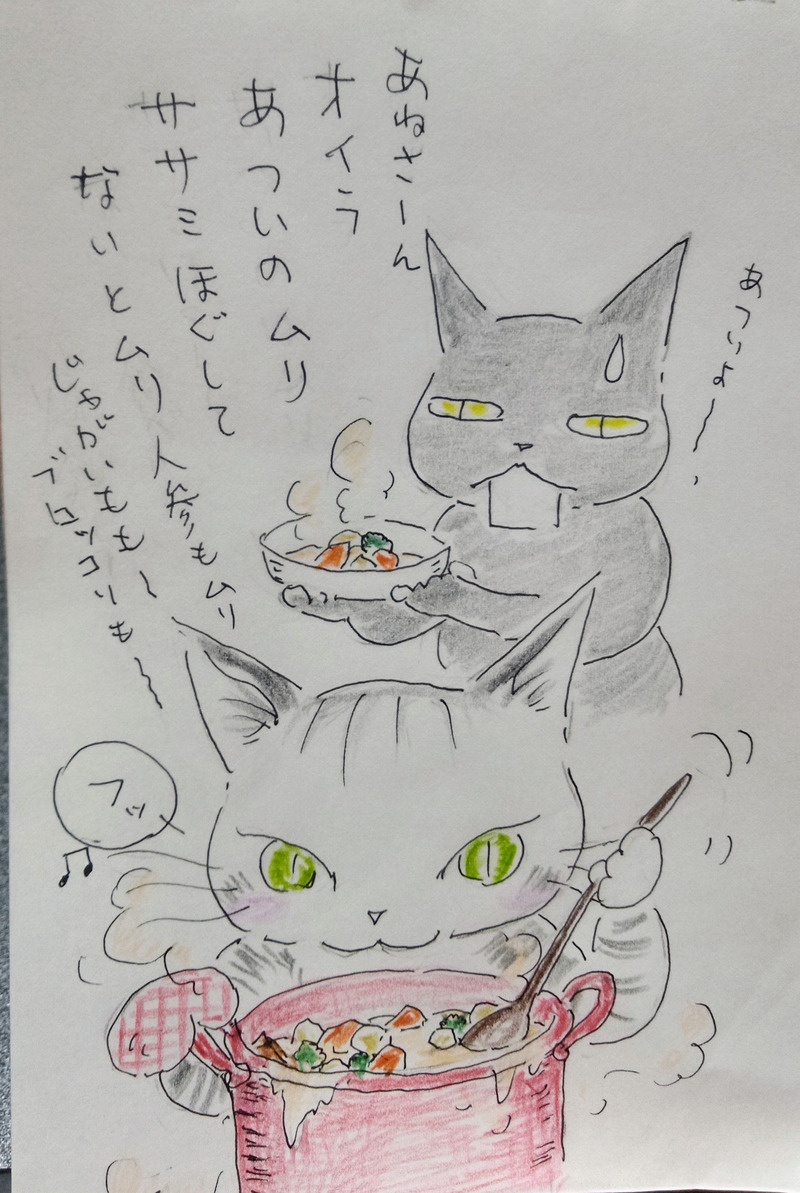 あねさーん
オイラ
あついのムリ
ササミほぐして
ないとムリ
人参もムリ
じゃがいもも〜
ブロッコリも〜
あついよ〜、
フッ